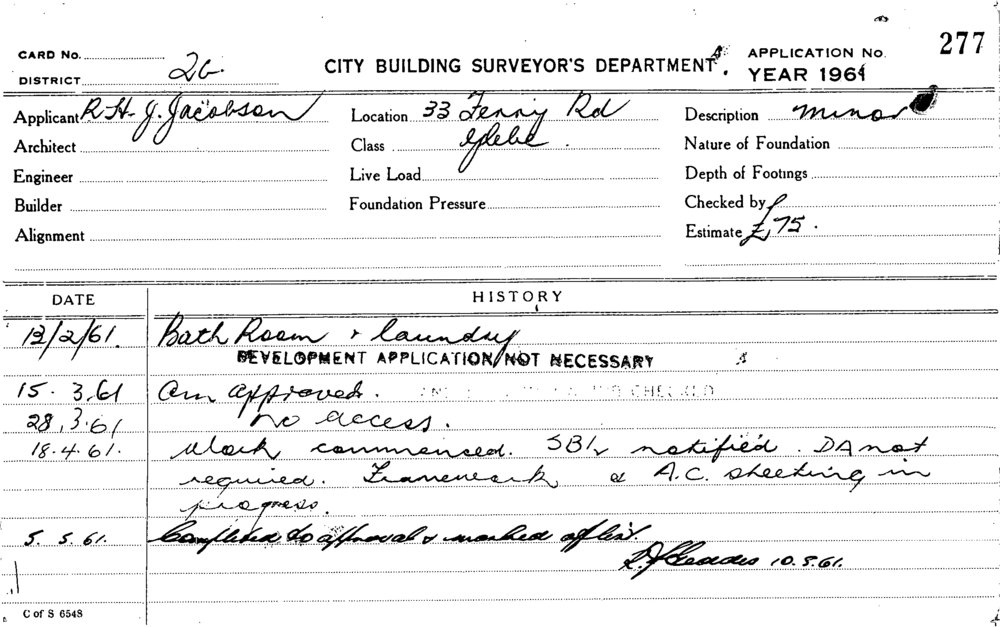 277
CARD No.
DISTRICT 26.
CITY BUILDING SURVEYOR'S DEPARTMENT.
APPLICATION No.
YEAR 1961
Applicant R H. J. Jacobson
Location 33 Ferry Rd
Description Minor
Architect
Class Glebe.
Nature of Foundation
Engineer
Live Load
Depth of Footings
Builder
Foundation Pressure
Checked by
Alignment
Estimate £75.
DATE
HISTORY
13/2/61. Bath Room & laundry
DEVELOPMENT APPLICATION NOT NECESSARY
15. 3.61 Am approved. CHECKED
28.3.61 no access.
18.4.61. Work commenced. SBI notified. DA not
required. Framework & A.C. sheeting in
progress.
5. 5.61. Completed to approval & marked off list.
10.5.61.
C of S 6548